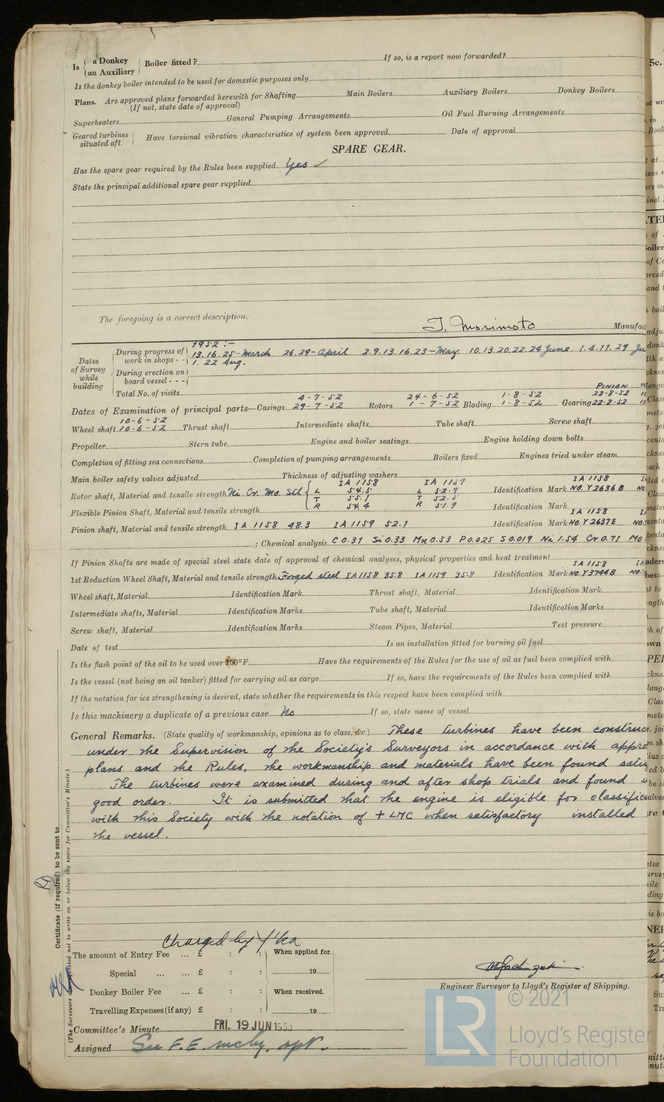 Is { a Donkey / an Auxiliary } Boiler fitted? If so, is a report now forwarded?
Is the donkey boiler intended to be used for domestic purposes only
Plans. Are approved plans forwarded herewith for Shafting Main Boilers Auxiliary Boilers Donkey Boilers
(If not, state date of approval)
Superheaters General Pumping Arrangements Oil Fuel Burning Arrangements
Geared turbines situated aft. Have torsional vibration characteristics of system been approved Date of approval
SPARE GEAR.
Has the spare gear required by the Rules been supplied Yes ✓
State the principal additional spare gear supplied
The foregoing is a correct description.
T. Morimoto Manufac
Dates of Survey while building
1952:-
During progress of work in shops - - 13.16.25-March 26.29-April 2.9.13.16.23-May. 10.13.20.22.24 June 1.4.11.29
1. 22 Aug.
During erection on board vessel - - -
Total No. of visits
Dates of Examination of principal parts—Casings 4-7-52 29-7-52 Rotors 24-6-52 1-7-52 Blading 1-8-52 1-8-52 Gearing PINION 22-8-52 22-8-52
Wheel shaft 10-6-52 10-6-52 Thrust shaft Intermediate shafts Tube shaft Screw shaft
Propeller Stern tube Engine and boiler seatings Engine holding down bolts
Completion of fitting sea connections Completion of pumping arrangements Boilers fixed Engines tried under steam
Main boiler safety valves adjusted Thickness of adjusting washers
Rotor shaft, Material and tensile strength Ni Cr. Mo. Stl { IA 1158 L 54.5 T 55.1 R 54.4 IA 1159 L 52.9 T 52.5 R 51.9 Identification Mark IA 1158 NO. Y2636 B
Flexible Pinion Shaft, Material and tensile strength Identification Mark
Pinion shaft, Material and tensile strength IA 1158 48.3 IA 1159 52.1 Identification Mark IA 1158 NO. Y2637E
; Chemical analysis C 0.31 Si 0.33 Mn 0.53 P 0.025 S 0.019 Ni 1.54 Cr 0.71 Mo
If Pinion Shafts are made of special steel state date of approval of chemical analyses, physical properties and heat treatment
1st Reduction Wheel Shaft, Material and tensile strength Forged steel IA 1158 35.8 IA 1159 35.8 Identification Mark IA 1158 NO. Y3744B
Wheel shaft, Material Identification Mark Thrust shaft, Material Identification Mark
Intermediate shafts, Material Identification Marks Tube shaft, Material Identification Marks
Screw shaft, Material Identification Marks Steam Pipes, Material Test pressure
Date of test Is an installation fitted for burning oil fuel
Is the flash point of the oil to be used over 150°F. Have the requirements of the Rules for the use of oil as fuel been complied with
Is the vessel (not being an oil tanker) fitted for carrying oil as cargo If so, have the requirements of the Rules been complied with
If the notation for ice strengthening is desired, state whether the requirements in this respect have been complied with
Is this machinery a duplicate of a previous case No If so, state name of vessel
General Remarks. (State quality of workmanship, opinions as to class, &c.) These turbines have been construc
under the Supervision of the Society's Surveyors in accordance with appro
plans and the Rules, the workmanship and materials have been found satis
The turbines were examined during and after shop trials and found
good order. It is submitted that the engine is eligible for classific
with this Society with the notation of + LMC when satisfactory installed
the vessel.
Certificate (if required) to be sent to
Charged by
The amount of Entry Fee ... £ : : When applied for.
Special ... ... £ : : 19
Donkey Boiler Fee ... £ : : When received.
Travelling Expenses (if any) £ : : 19
Engineer Surveyor to Lloyd's Register of Shipping.
Committee's Minute FRI. 19 JUN 1953
Assigned See F.E. mchy. rpt.
© 2021
LR Lloyd's Register Foundation